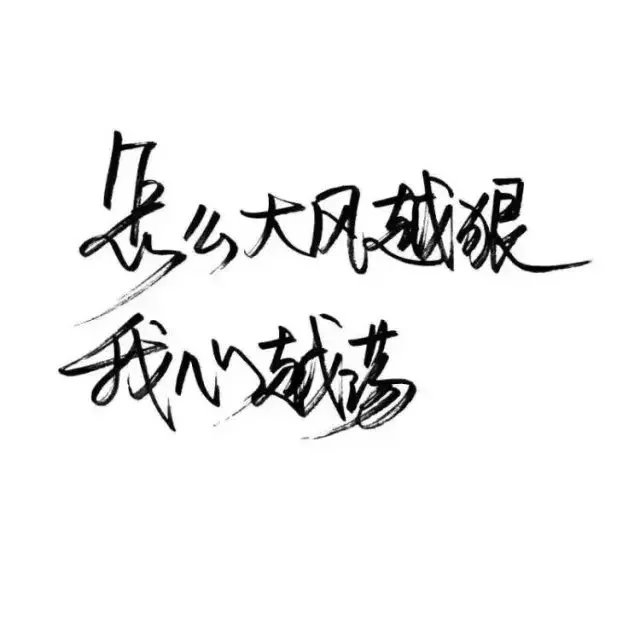 怎么大风越狠
我心越荡